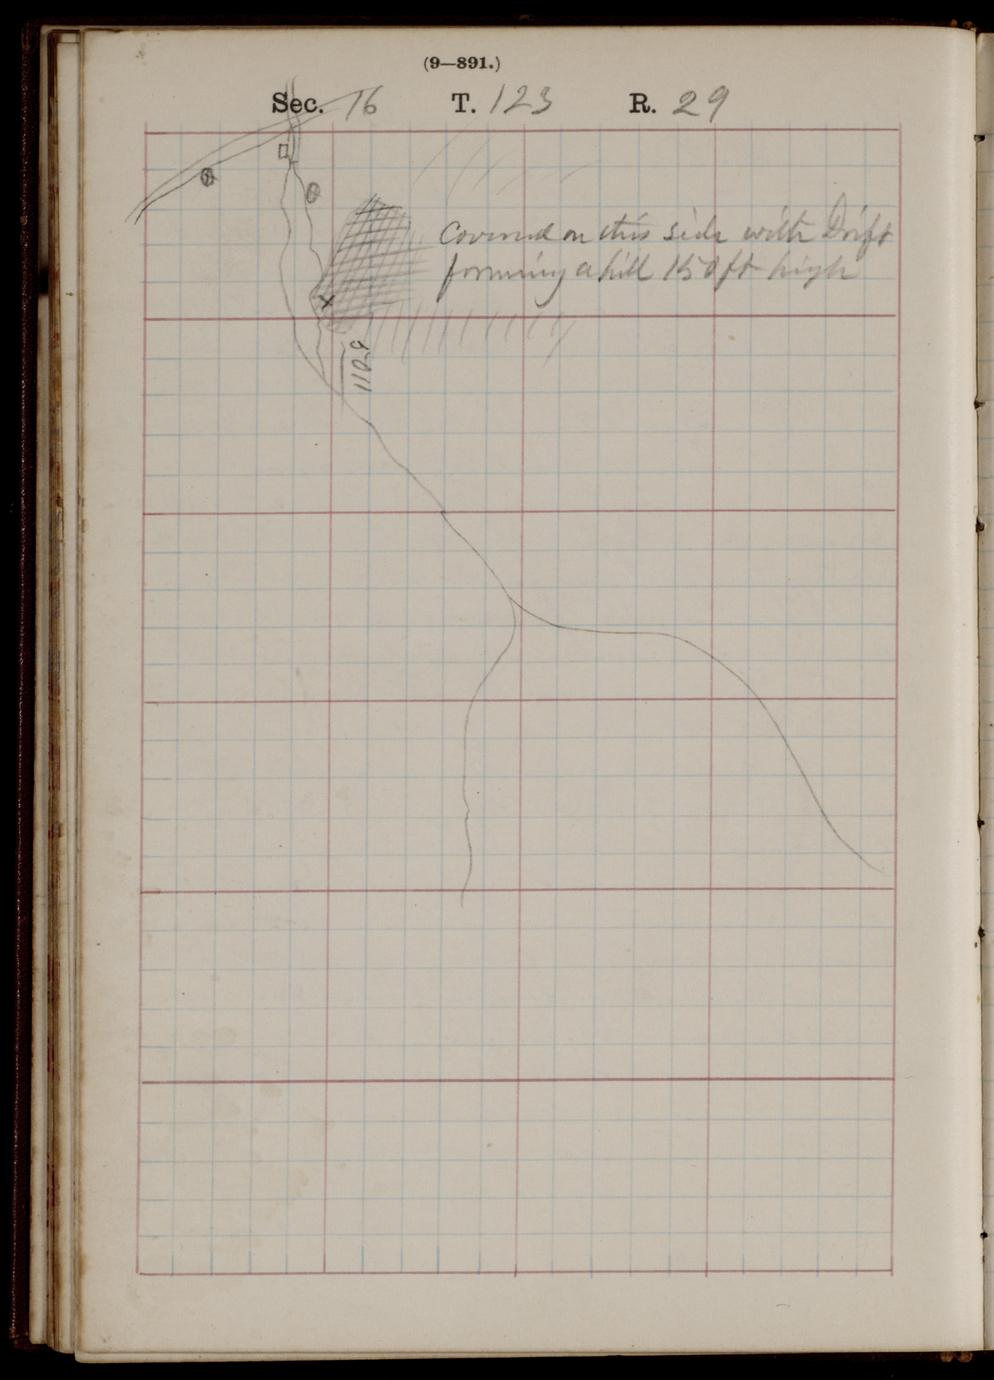 (9—891.)
Sec. 16 T. 123 R. 29
Covered on this side with Drift
forming a hill 150 ft high
1109